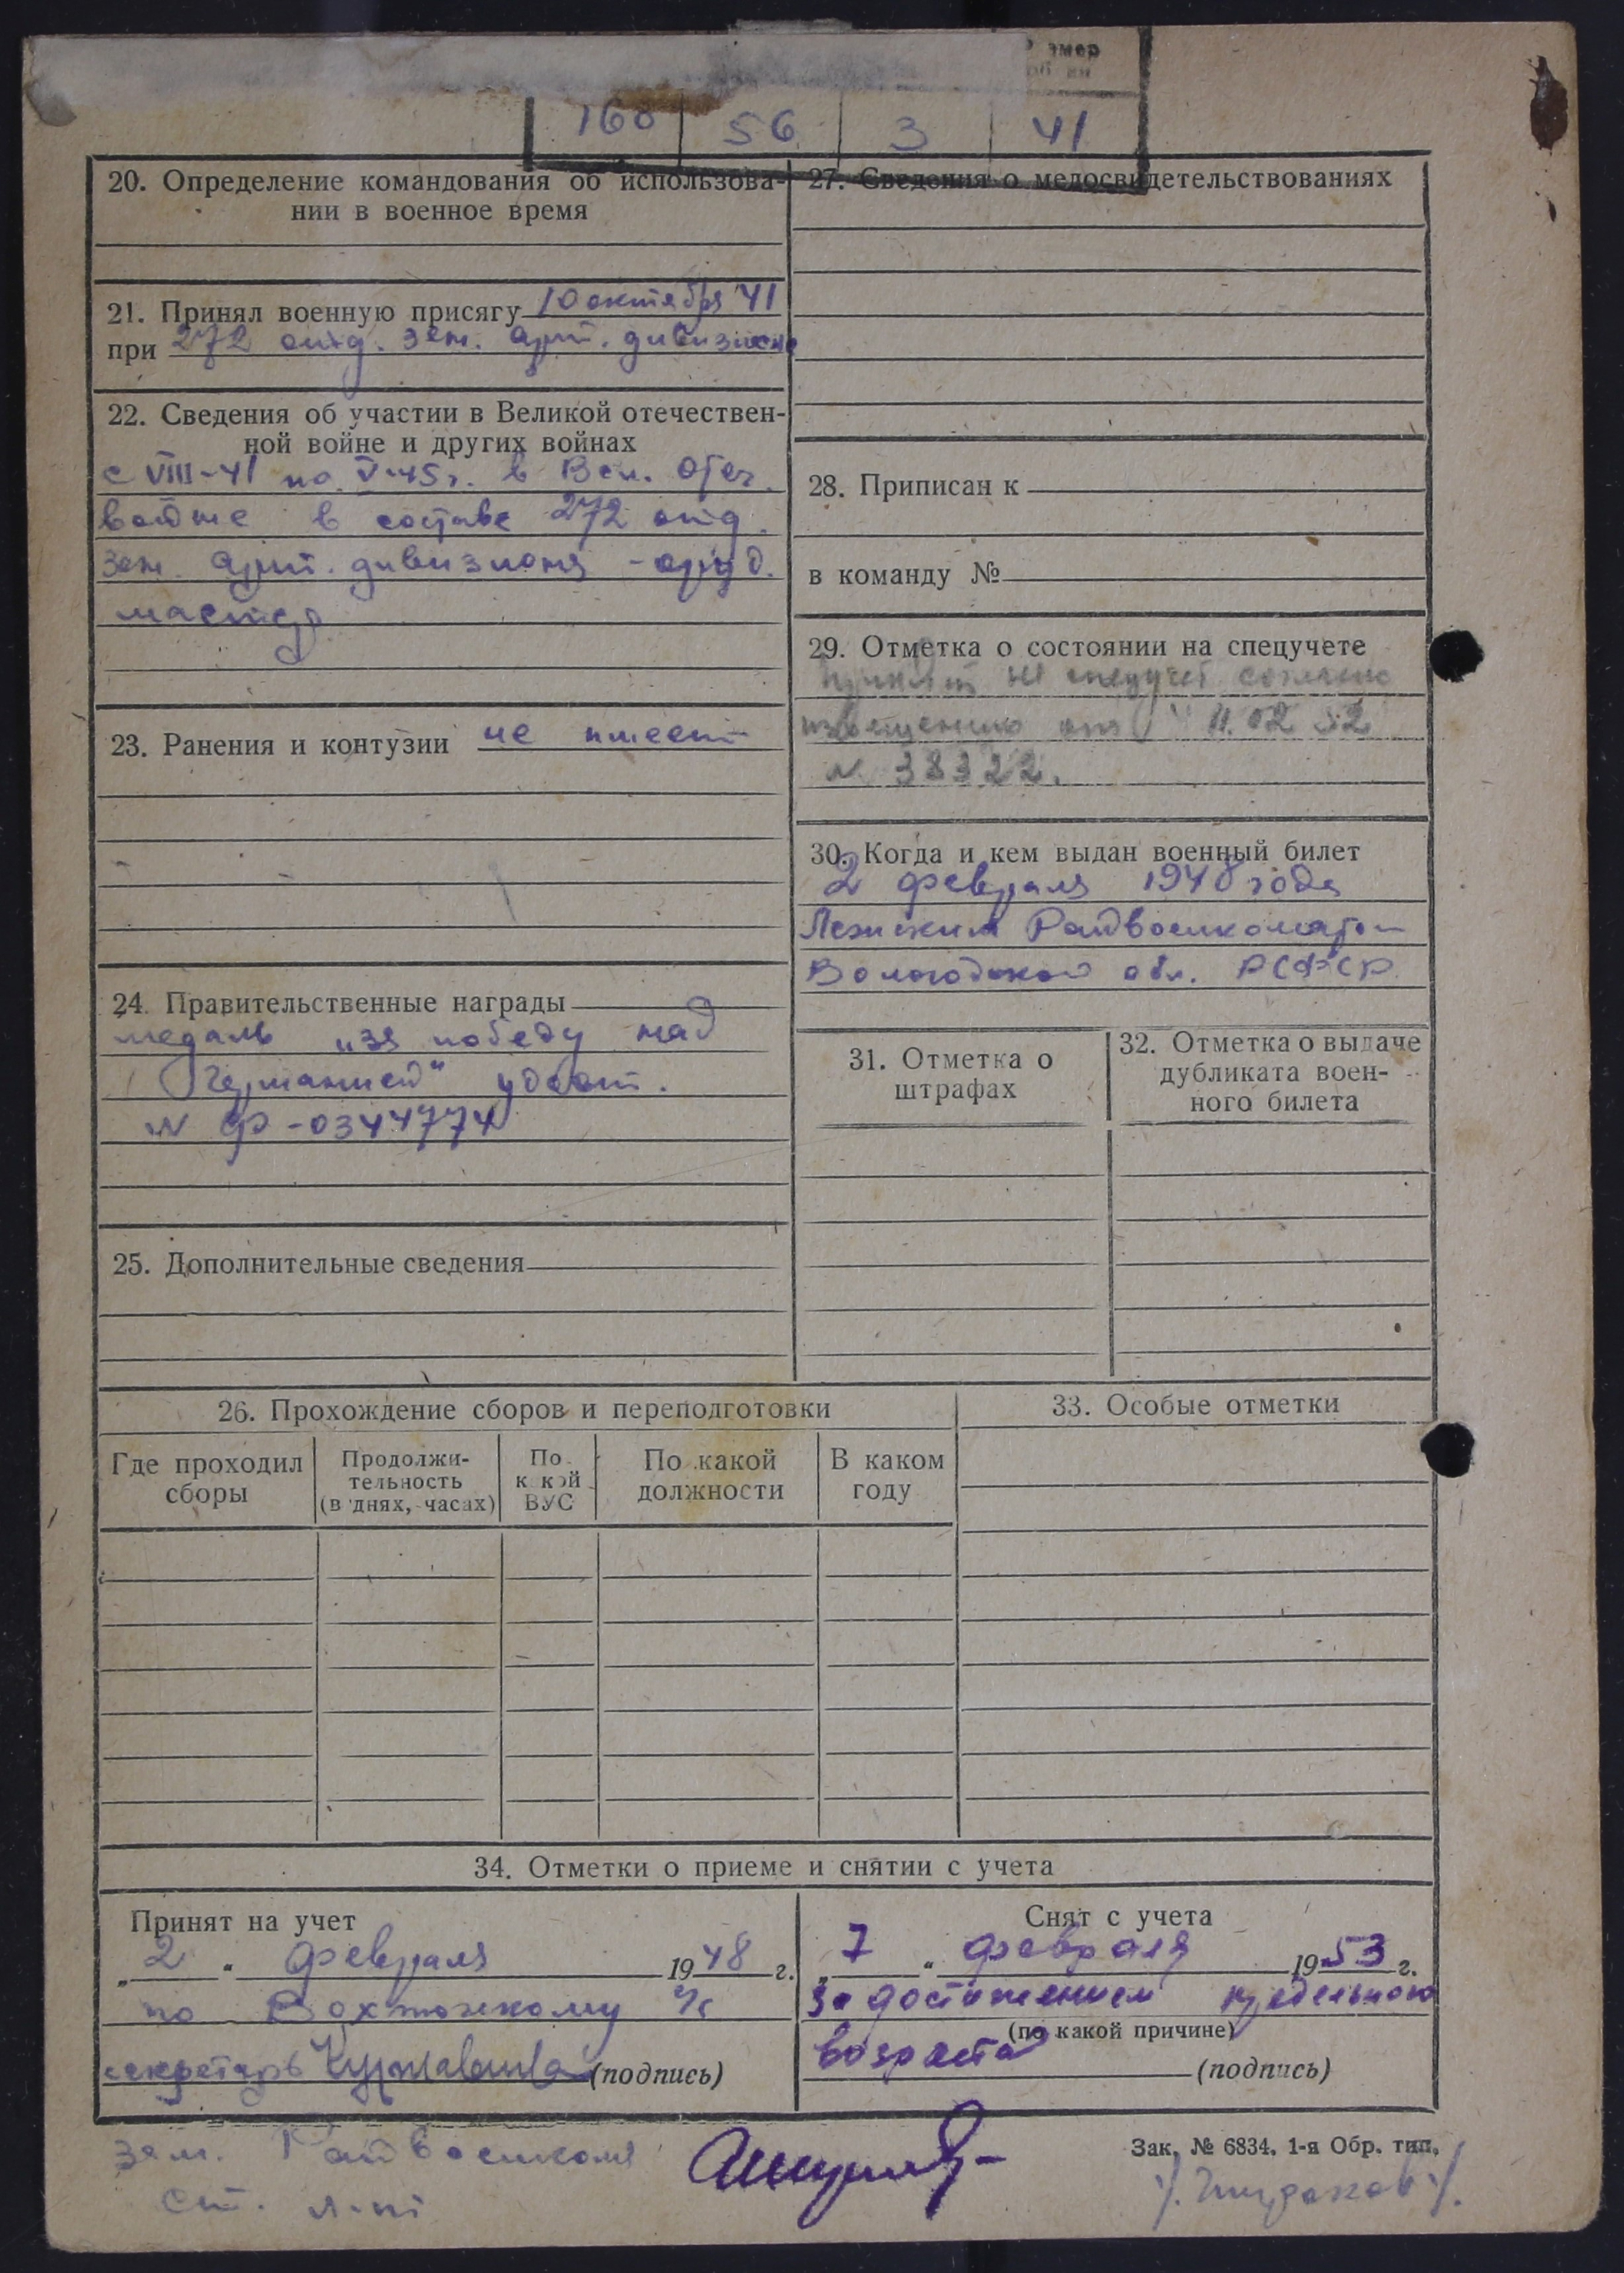 168 56 3 41
20. Определение командования об использова-
нии в военное время
21. Принял военную присягу 10 октября 41
при 272 отд. зен. арт. дивизионе
22. Сведения об участии в Великой отечествен-
ной войне и других войнах
с VIII-41 по V-45 г. в Вел. Отеч.
войне в составе 272 отд.
зен. арт. дивизиона - оруд.
мастер
23. Ранения и контузии не имеет
24. Правительственные награды
медаль "за победу над
Германией" удост.
N Ф-0344774
25. Дополнительные сведения
27. Сведения о медосвидетельствованиях
28. Приписан к
в команду №
29. Отметка о состоянии на спецучете
Принят на спецучет согласно
извещению от 11.02 52
N 38322.
30. Когда и кем выдан военный билет
2 февраля 1948 года
Лежским Райвоенкоматом
Вологодской обл. РСФСР.
31. Отметка о
штрафах
32. Отметка о выдаче
дубликата воен-
ного билета
26. Прохождение сборов и переподготовки
Где проходил
сборы
Продолжи-
тельность
(в днях, часах)
По
какой
ВУС
По какой
должности
В каком
году
33. Особые отметки
34. Отметки о приеме и снятии с учета
Принят на учет
„2“ февраля 1948 г.
по Вохтожскому
секретарь (подпись)
Снят с учета
„7“ февраля 1953 г.
За достижением предельного
(по какой причине)
возраста
(подпись)
Зак. № 6834. 1-я Обр. тип.
зам. Райвоенкома
ст. л-нт